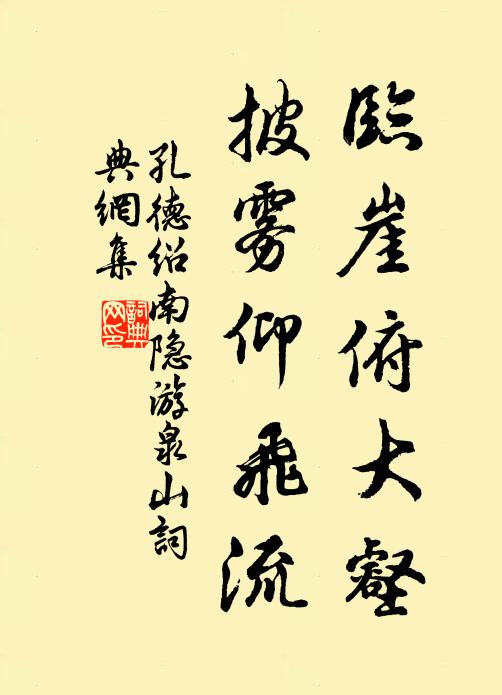 臨崖俯大壑
披雾仰飛流
孔德绍南隐游泉山詞
典網集
詞典
网印